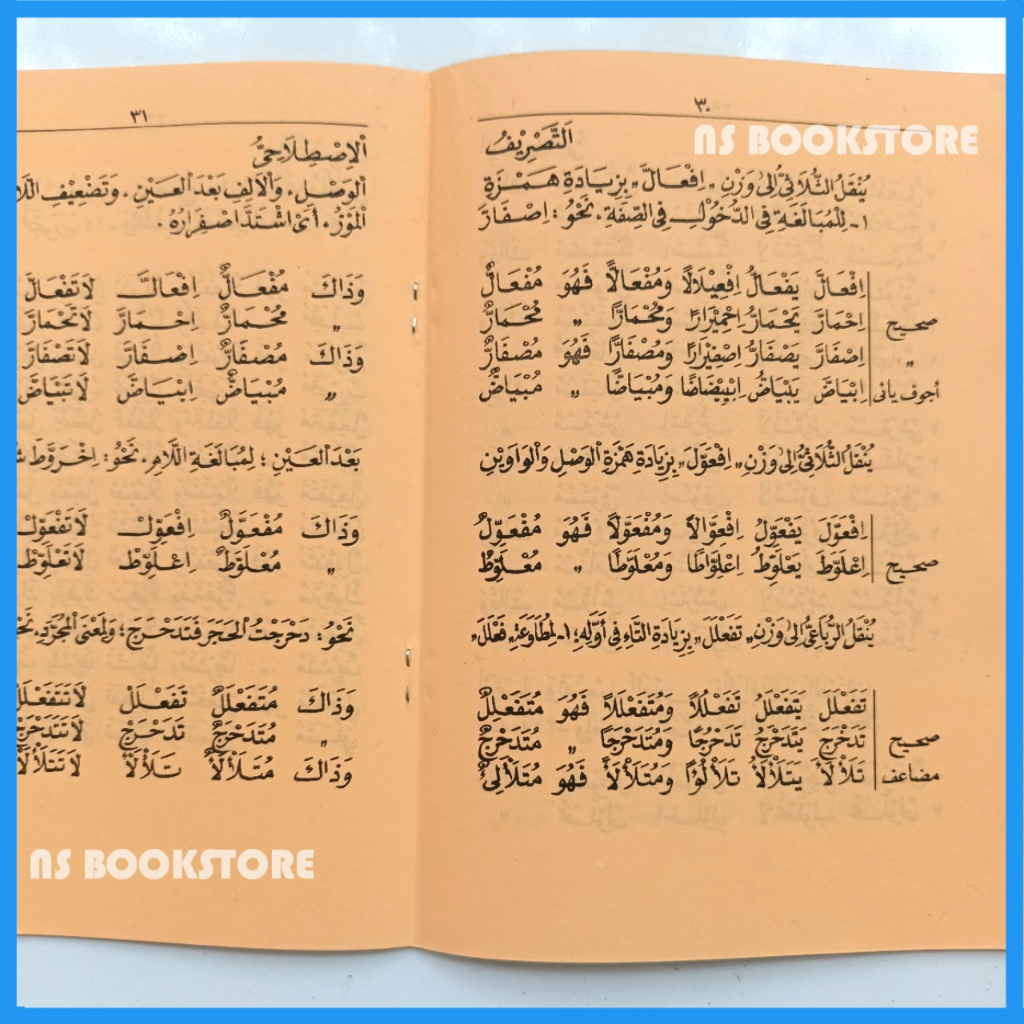 ٣٠
NS BOOKSTORE
اَلتَّصْرِيْفُ
يُنْقَلُ الثُّلَاثِيُّ اِلٰى وَزْنِ „ اِفْعَالَّ „ بِزِيَادَةِ هَمْزَةِ
١- لِلْمُبَالَغَةِ فِى الدُّخُوْلِ فِى الصِّفَةِ، نَحْوُ : اِصْفَارَّ
اِفْعَالَّ يَفْعَالُّ اِفْعِيْلَالًا وَمُفْعَالًّا فَهُوَ مُفْعَالٌّ
صحيح اِحْمَارَّ يَحْمَارُّ اِحْمِيْرَارًا وَمُحْمَارًّا „ مُحْمَارٌّ
„ اِصْفَارَّ يَصْفَارُّ اِصْفِيْرَارًا وَمُصْفَارًّا فَهُوَ مُصْفَارٌّ
أجوف يائى اِبْيَاضَّ يَبْيَاضُّ اِبْيِيْضَاضًا وَمُبْيَاضًّا „ مُبْيَاضٌّ
يُنْقَلُ الثُّلَاثِيُّ اِلٰى وَزْنِ „ اِفْعَوَّلَ „ بِزِيَادَةِ هَمْزَةِ الْوَصْلِ وَالْوَاوَيْنِ
اِفْعَوَّلَ يَفْعَوِّلُ اِفْعِوَّالًا وَمُفْعَوَّلًا فَهُوَ مُفْعَوِّلٌ
صحيح اِعْلَوَّطَ يَعْلَوِّطُ اِعْلِوَّاطًا وَمُعْلَوَّطًا „ مُعْلَوِّطٌ
يُنْقَلُ الرُّبَاعِيُّ اِلٰى وَزْنِ „ تَفَعْلَلَ „ بِزِيَادَةِ التَّاءِ فِى أَوَّلِهِ؛ ١- لِمُطَاوَعَةِ „ فَعْلَلَ „
تَفَعْلَلَ يَتَفَعْلَلُ تَفَعْلُلًا وَمُتَفَعْلَلًا فَهُوَ مُتَفَعْلِلٌ
صحيح تَدَحْرَجَ يَتَدَحْرَجُ تَدَحْرُجًا وَمُتَدَحْرَجًا „ مُتَدَحْرِجٌ
مضاعف تَلَأْلَأَ يَتَلَأْلَأُ تَلَأْلُؤًا وَمُتَلَأْلَأً فَهُوَ مُتَلَأْلِئٌ
٣١
اَلْاِصْطِلَاحِيُّ
الْوَصْلِ، وَالْاَلِفِ بَعْدَ الْعَيْنِ، وَتَضْعِيْفِ
الْمَوْزُ، أَىْ اشْتَدَّ اصْفِرَارُهُ .
وَذَاكَ مُفْعَالٌّ اِفْعَالَّ لَاتَفْعَالَّ
„ مُحْمَارٌّ اِحْمَارَّ لَاتَحْمَارَّ
وَذَاكَ مُصْفَارٌّ اِصْفَارَّ لَاتَصْفَارَّ
„ مُبْيَاضٌّ اِبْيَاضَّ لَاتَبْيَاضَّ
بَعْدَ الْعَيْنِ ؛ لِمُبَالَغَةِ اللَّازِمِ. نَحْوُ : اِخْرَوَّطَ
وَذَاكَ مُفْعَوَّلٌ اِفْعَوِّلْ لَاتَفْعَوِّلْ
„ مُعْلَوَّطٌ اِعْلَوِّطْ لَاتَعْلَوِّطْ
نَحْوُ : دَحْرَجْتُ الْحَجَرَ فَتَدَحْرَجَ ؛ وَلِمَعْنَى الْمُجَرَّدِ،
وَذَاكَ مُتَفَعْلَلٌ تَفَعْلَلْ لَاتَتَفَعْلَلْ
„ مُتَدَحْرَجٌ تَدَحْرَجْ لَاتَتَدَحْرَجْ
وَذَاكَ مُتَلَأْلَأٌ تَلَأْلَأْ لَاتَتَلَأْلَأْ
NS BOOKSTORE